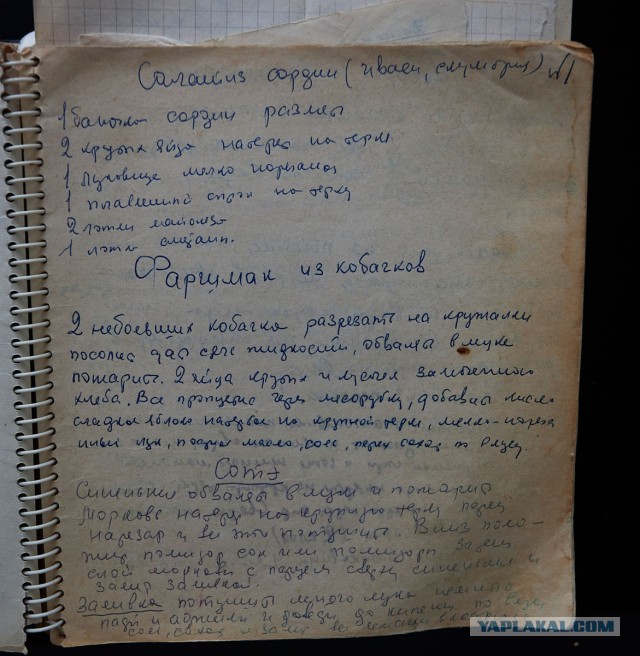 Салат из сардин (иваси, скумбрия) №1
1 баночка сардин размять
2 крутых яйца натереть на терке
1 луковицу мелко порезать
1 плавленный сырок на терку
2 ложки майонеза
1 ложка сметаны.
Фаршмак из кобачков
2 небольших кобачка разрезать на кружалки
посолить дать стечь жидкости, обвалять в муке
пожарить. 2 яйца крутых и кусочек замоченного
хлеба. Все пропустить через мясорубку, добавить
сладкое яблоко натертое на крупной терке, мелко-нареза
лук, масло, соль, перец сахар по вкусу.
Сотэ
Синенькие обвалять в муке и пожарить
Морковь натереть на крупную терку перец
нарезать и все это потушить. Вниз поло-
жить помидор сок или помидоры затем
слой моркови с перцем сверху синенькие и
залить заливкой.
Заливка потушить много лука немного
и довести до кипения по вкусу
соль, сахар и залить все
YAPLAKAL.COM